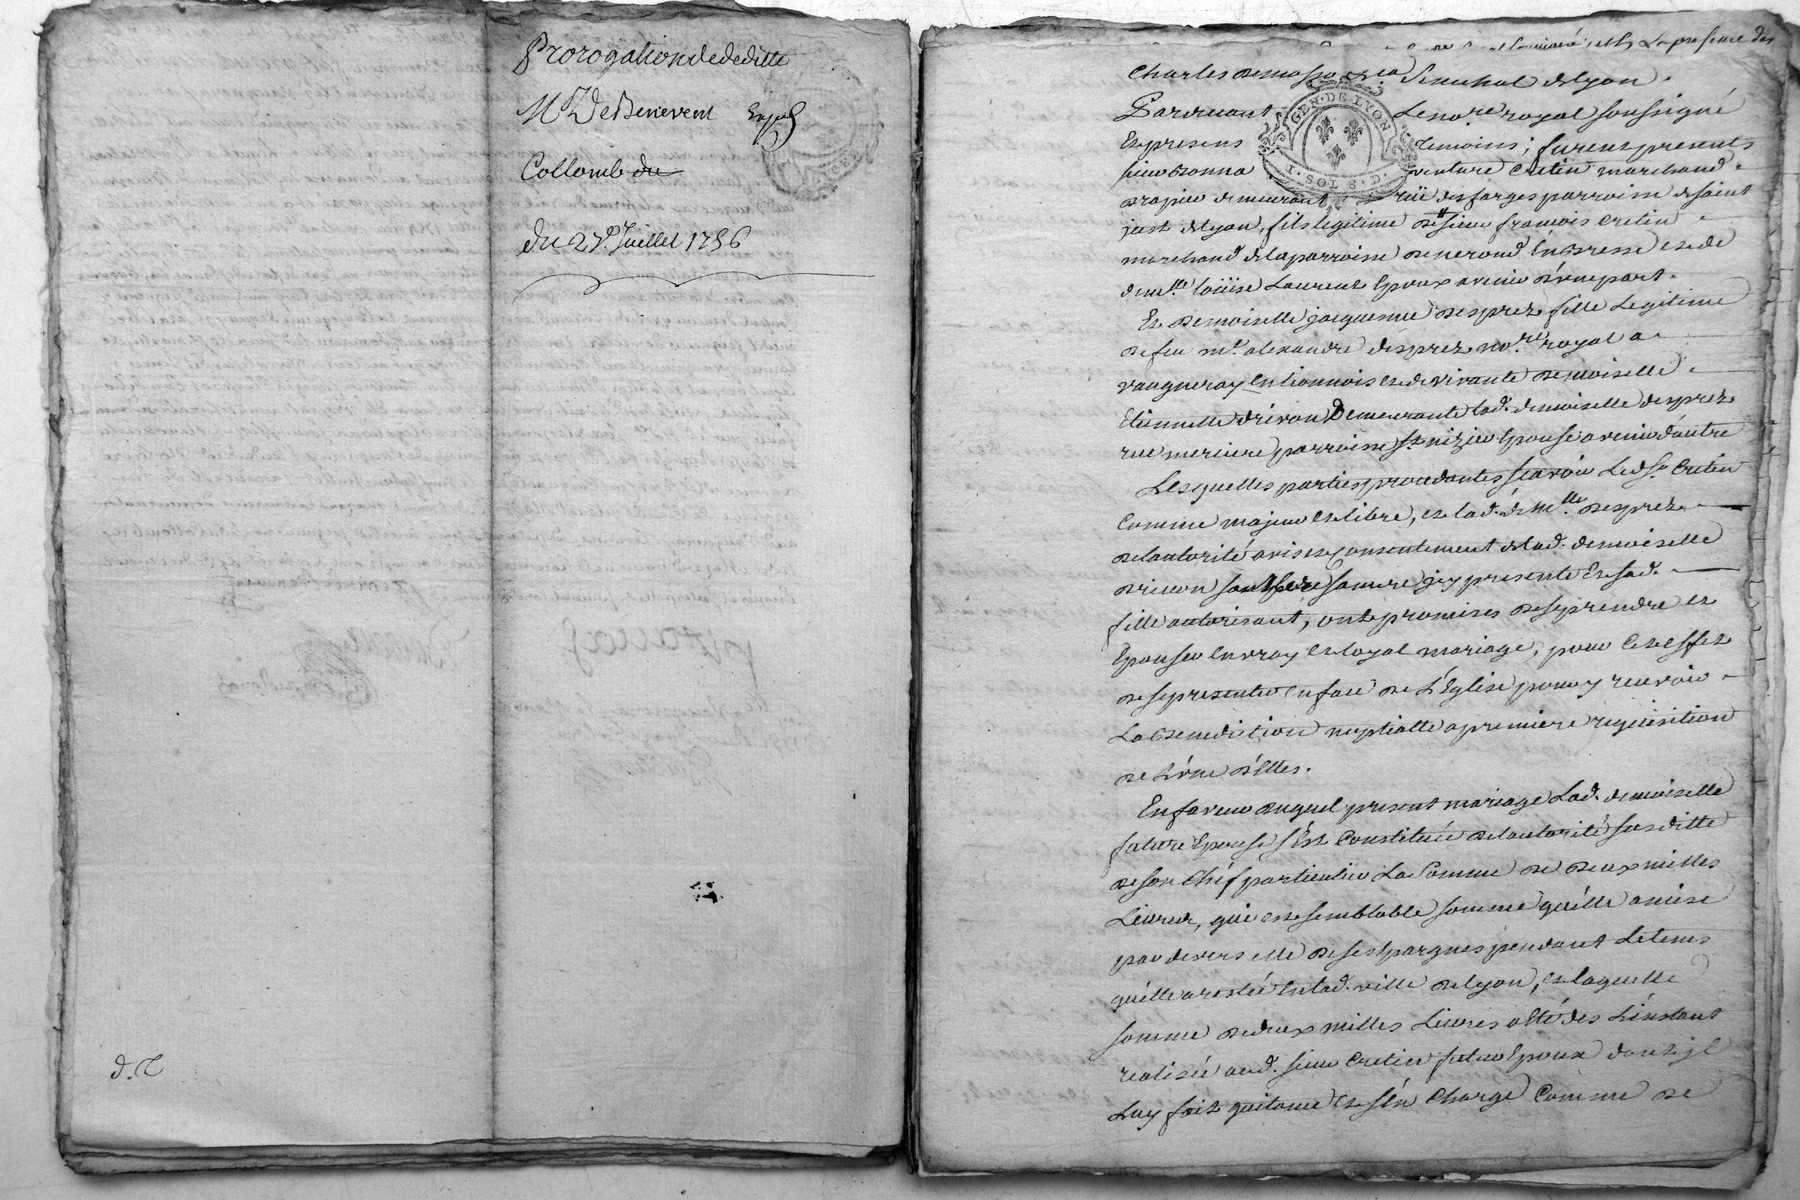 Prorogation de deditte
Mr De Benevent
Collomb du
du 27e. Juillet 1756
d. T
La presence des
Charles Senechal de Lyon
Pardevant Le nore royal soussigné
Et presens temoins, furent presents
sieur Bonna venture Cretin marchand
drapier demeurant rüe des farges parroisse de saint
just de Lyon, fils legitime de sieur françois Cretin
marchand de la parroisse de nerond En Bresse et de
demlle loüise Laurent Epoux avenir d'une part.
Et Demoiselle jacquemme Desprez fille Legitime
de feu me. alexandre desprez nore. royal a
vaugneray en Lionnois et de vivante Demoiselle
Etiennette drivon Demeurante lad. demoiselle desprez
rue merciere parroisse st nizier Epouse avenir d'autre
Lesquelles parties procedantes sçavoir Led. sr. Cretin
Comme majeur et libre, et lad. demlle. Desprez
de l'autorité avis et Consentement de lad. demoiselle
Drivon sa mere icy presente Et sad.
fille autorisant, ont promises de se prendre et
Epouser En vray et loyal mariage, pour Cet effet
de se presenter en face de L'Eglise pour y recevoir
La Benediction nuptialle a premiere requisition
de L'une d'Elles.
En faveur duquel present mariage Lad. demoiselle
future Epouse s'est Constituée de l'autorité susditte
de son Chef particulier La somme de deux milles
Livres, qui est semblable somme qu'elle a mise
par devers elle de ses Epargnes pendant Le tems
qu'elle a restée En lad. ville de Lyon, et laquelle
somme de deux milles Livres a Eté des L'instant
realisée aud. sieur Cretin futur Epoux dont il
Luy fait quitance et s'en Charge Comme de
GEN. DE LYON
1. SOL 8. D.